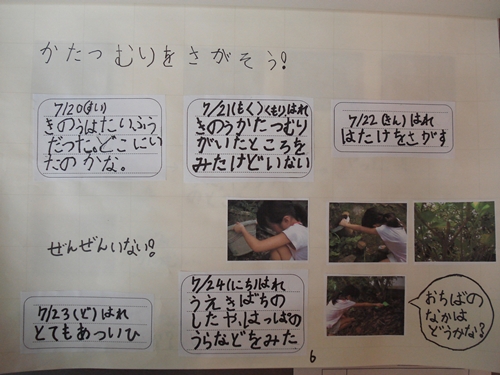 かたつむりをさがそう!
7/20(すい)
きのうはたいふう
だった。どこにい
たのかな。
7/21(もく)くもりはれ
きのうかたつむり
がいたところを
みたけどいない
7/22(きん)はれ
はたけをさがす
ぜんぜんいない!
7/23(ど)はれ
とてもあついひ
7/24(にち)はれ
うえきばちの
したや、はっぱの
うらなどをみた
おちばの
なかは
どうかな?
6